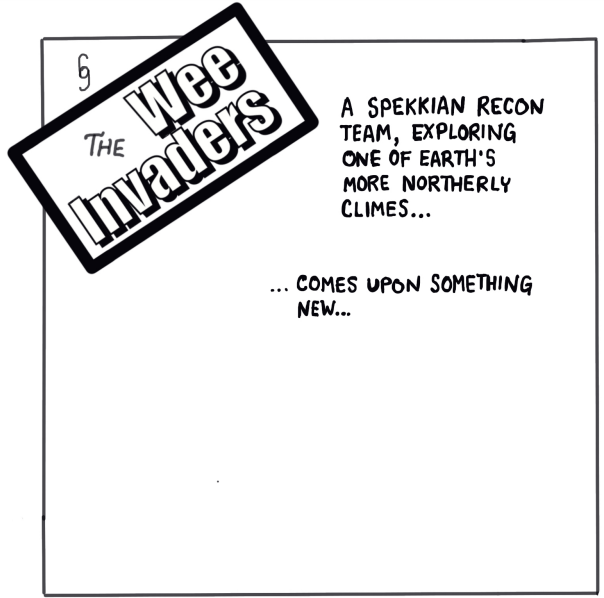 THE Wee
Invaders
A SPEKKIAN RECON
TEAM, EXPLORING
ONE OF EARTH'S
MORE NORTHERLY
CLIMES...
... COMES UPON SOMETHING
NEW...